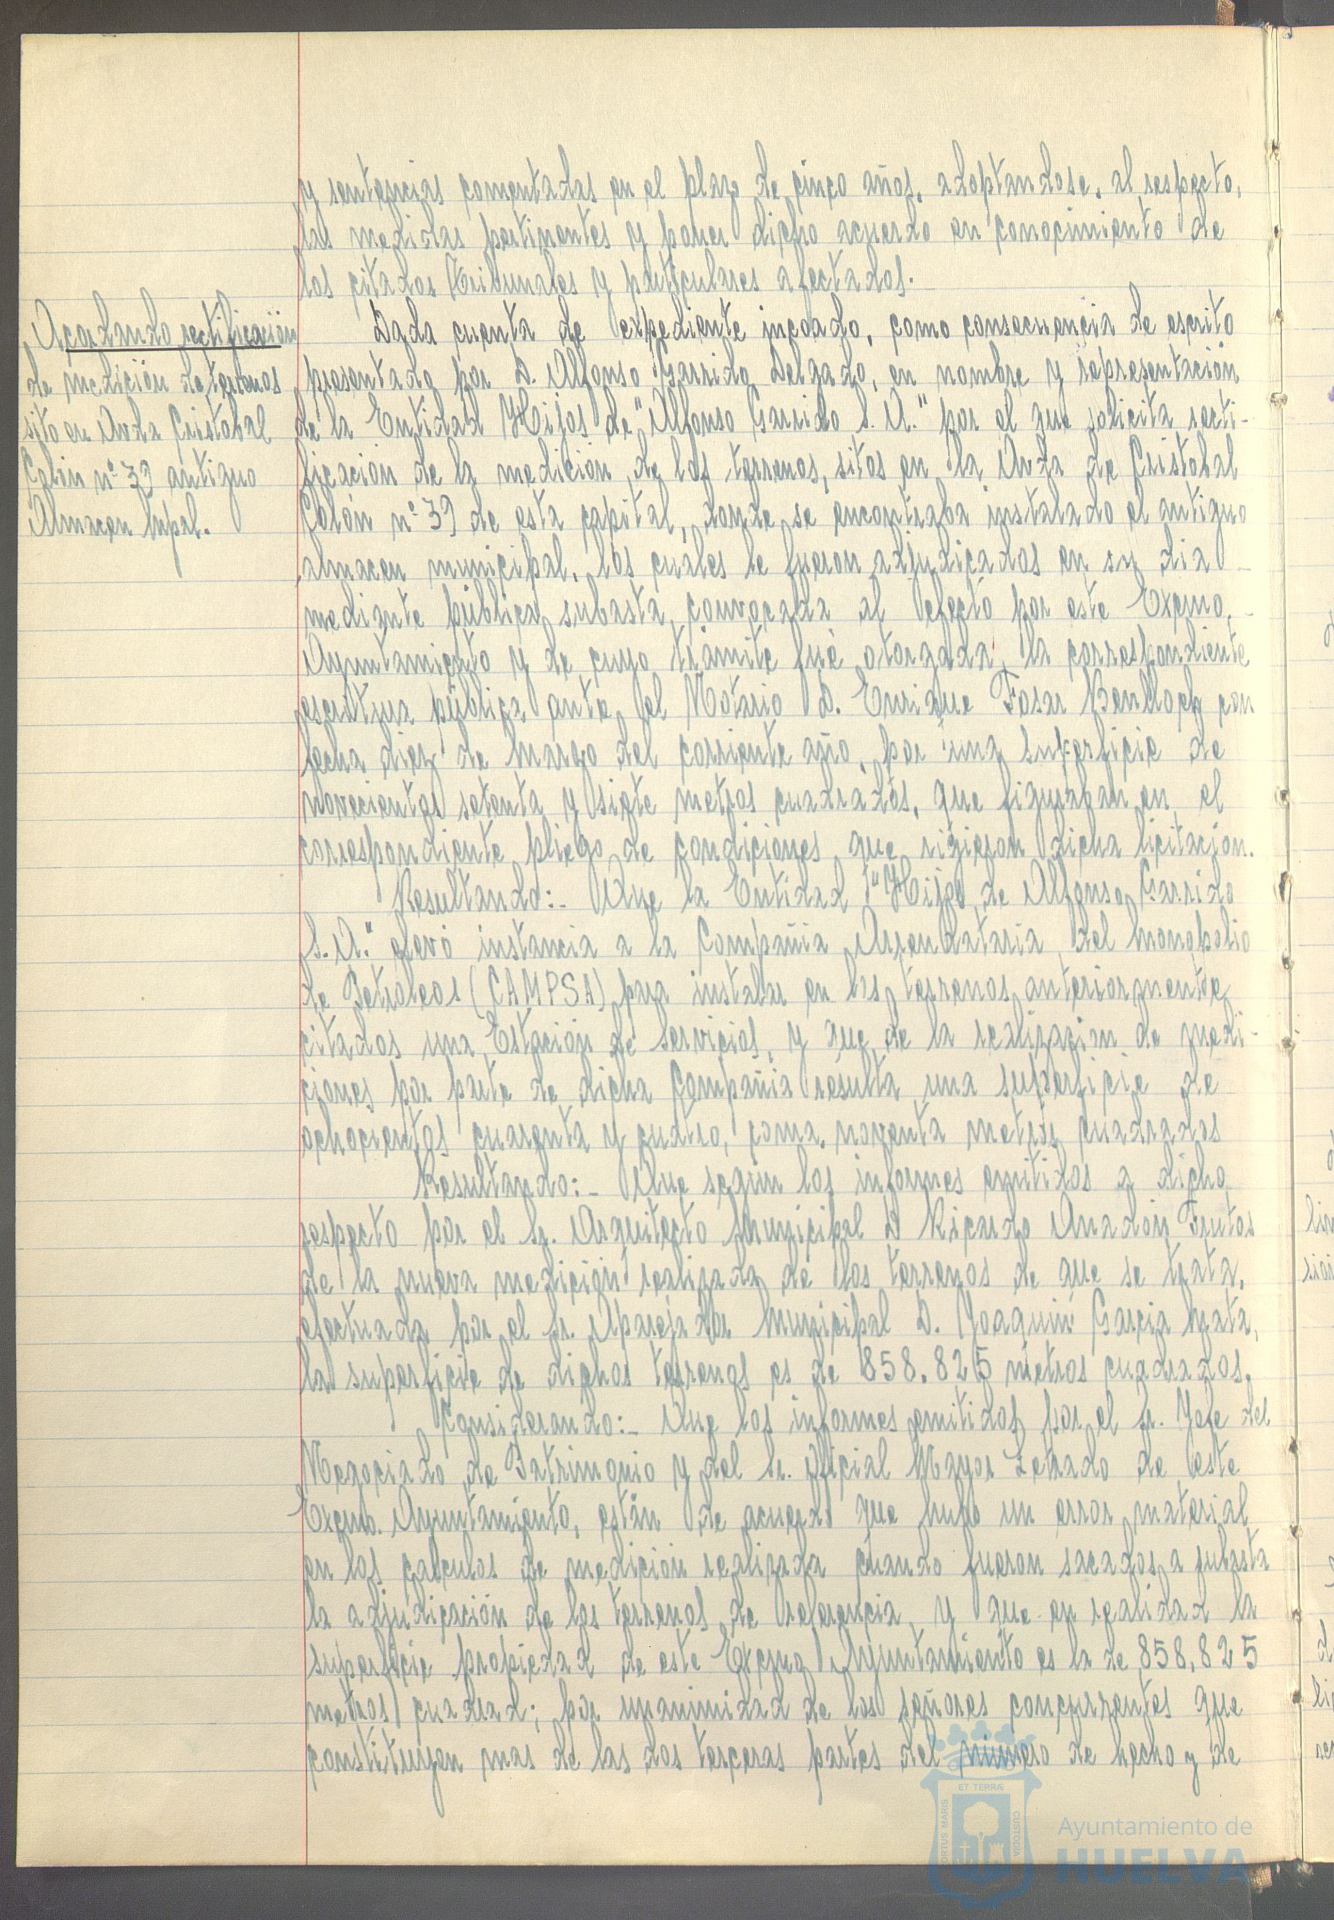 y sentencias comentadas en el plazo de cinco años, adoptandose, al respecto,
las medidas pertinentes y poner dicho acuerdo en conocimiento de
los citados Tribunales y particulares afectados.-
Acordando rectificación
de medición de terrenos
sito en Avda Cristobal
Colón nº 39 antiguo
Almacen Mpal.
Dada cuenta de expediente incoado, como consecuencia de escrito
presentado por D. Alfonso Garrido Delgado, en nombre y representación
de la Entidad Hijos de "Alfonso Garrido S. A." por el que solicita recti-
ficación de la medición de los terrenos, sitos en la Avda de Cristobal
Colón nº 39 de esta capital, donde se encontraba instalado el antiguo
almacen municipal, los cuáles le fueron adjudicados en su dia
mediante pública subasta convocada al efecto por este Excmo.
Ayuntamiento y de cuyo trámite fué otorgada la correspondiente
escritura pública ante el Notario D. Enrique Fosar Benlloch con
fecha diez de Marzo del corriente año, por una superficie de
novecientos setenta y siete metros cuadrados, que figuraban en el
correspondiente pliego de condiciones que rigieron dicha licitación.
Resultando:- Que la Entidad "Hijos de Alfonso Garrido
S. A." elevó instancia a la Compañia Arrendataria del Monopolio
de Petroleos (CAMPSA) para instalar en los terrenos anteriormente
citados una Estación de Servicios, y que de la realización de medi-
ciones por parte de dicha Compañia resulta una superficie de
ochocientos cuarenta y cuatro, coma, noventa metros cuadrados
Resultando:- Que según los informes emitidos a dicho
respecto por el Sr. Arquitecto Municipal D Ricardo Anadón Frutos
de la nueva medición realizada de los terrenos de que se trata,
efectuada por el Sr. Aparejador Municipal D. Joaquin Garcia Mata,
la superficie de dichos terrenos es de 858.825 metros cuadrados.
Considerando:- Que los informes emitidos por el Sr. Jefe del
Negociado de Patrimonio y del Sr. Oficial Mayor Letrado de este
Excmo. Ayuntamiento, están de acuerdo que hubo un error material
en los calculos de medición realizada cuando fueron sacados a subasta
la adjudicación de los terrenos de referencia y que en realidad la
superficie propiedad de este Excmo Ayuntamiento es la de 858,825
metros cuadrad; por unanimidad de los señores concurrentes que
constituyen mas de las dos terceras partes del número de hecho y de
ET TERRÆ
PORTUS MARIS
CUSTODIA
Ayuntamiento de
HUELVA